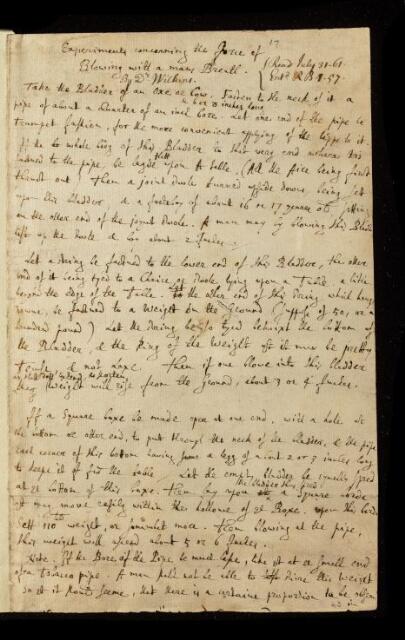 17
Experiments concerning the force of
Blowing with a mans Breath. { Read July 31-61
By Dr Wilkins. Entd R B 1-57.
Take the Bladder of an oxe or Cow, fasten to the neck of it a
pipe of about a Quarter of an inch bore. Let one end of the pipe be
trumpet fashion, for the more convenient applying of the lipps to it.
If the whole body of this Bladder in that very end where tis
fastned to the pipe, be layd upon a table, (All the Aire being first
thrust out) Then a joint stoole turned upside downe being sett
upon this bladder, & a of about 16 or 17 yeares old sitting
on the other end of the joint stoole. A man may by blowing this Bladder
lift up the stoole & boy about 2 Inches.
Let a string be fastned to the lower end of this Bladder, the other
end of it being tyed to a Chaire or stoole lying upon a Table, a little
beyond the edge of the Table. To the other end of this string which hangs
downe, be fastned to a Weight on the Ground (suppose of 50, or a
hundred pound) Let the string be so tyed betwixt the bottom of
the Bladder, & the Ring of the Weight as it may be pretty
& not Laxe. Then if one blowe into this bladder
the Weight will rise from the ground, about 3 or 4 Inches.
If a Square boxe be made open at one end, with a hole in
the bottom or other end, to putt through the neck of the bladder, & the pipe
each corner of this bottom having some a legg of about 2 or 3 inches long
to keepe it of from the table. Let the empty bladder be evenly spred
at the bottom of this boxe. Then lay upon the bladder thus spred a square board
as may move easily within the hollowe of the Boxe. upon this board
sett 110 lb weight, or somewhat more. Then blowing at the pipe,
this weight will ascend about 5 or 6 Inches.
Note. If the Bore of the Pipe be much lesse, like that at the small end
of a tobacco pipe. A man shall not be able to raise this Weight
so as it should seeme, that there is a certaine proportion to be observ
ed in